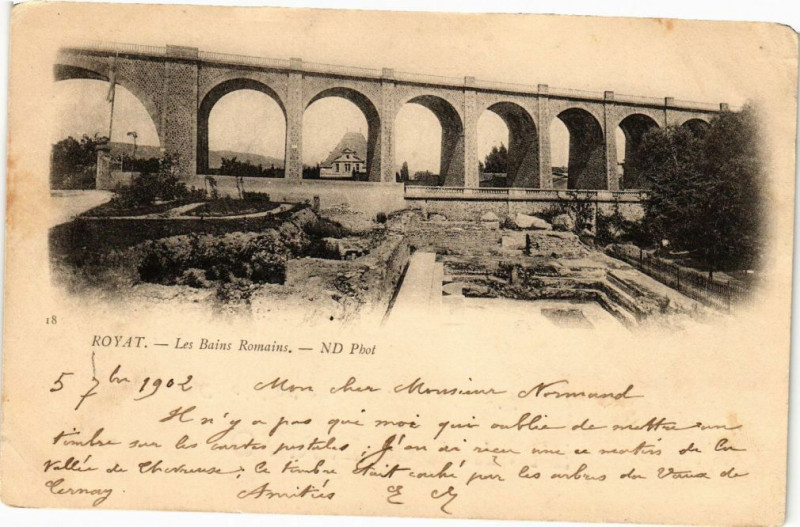 18
ROYAT. — Les Bains Romains. — ND Phot
5 7bre 1902 Mon cher Monsieur Normand
Il n'y a pas que moi qui oublie de mettre un
timbre sur les cartes postales ; J'en ai reçu une ce matin de la
Vallée de Chevreuse ; Ce timbre était caché par les arbres du Vaux de
Cernay. Amitiés